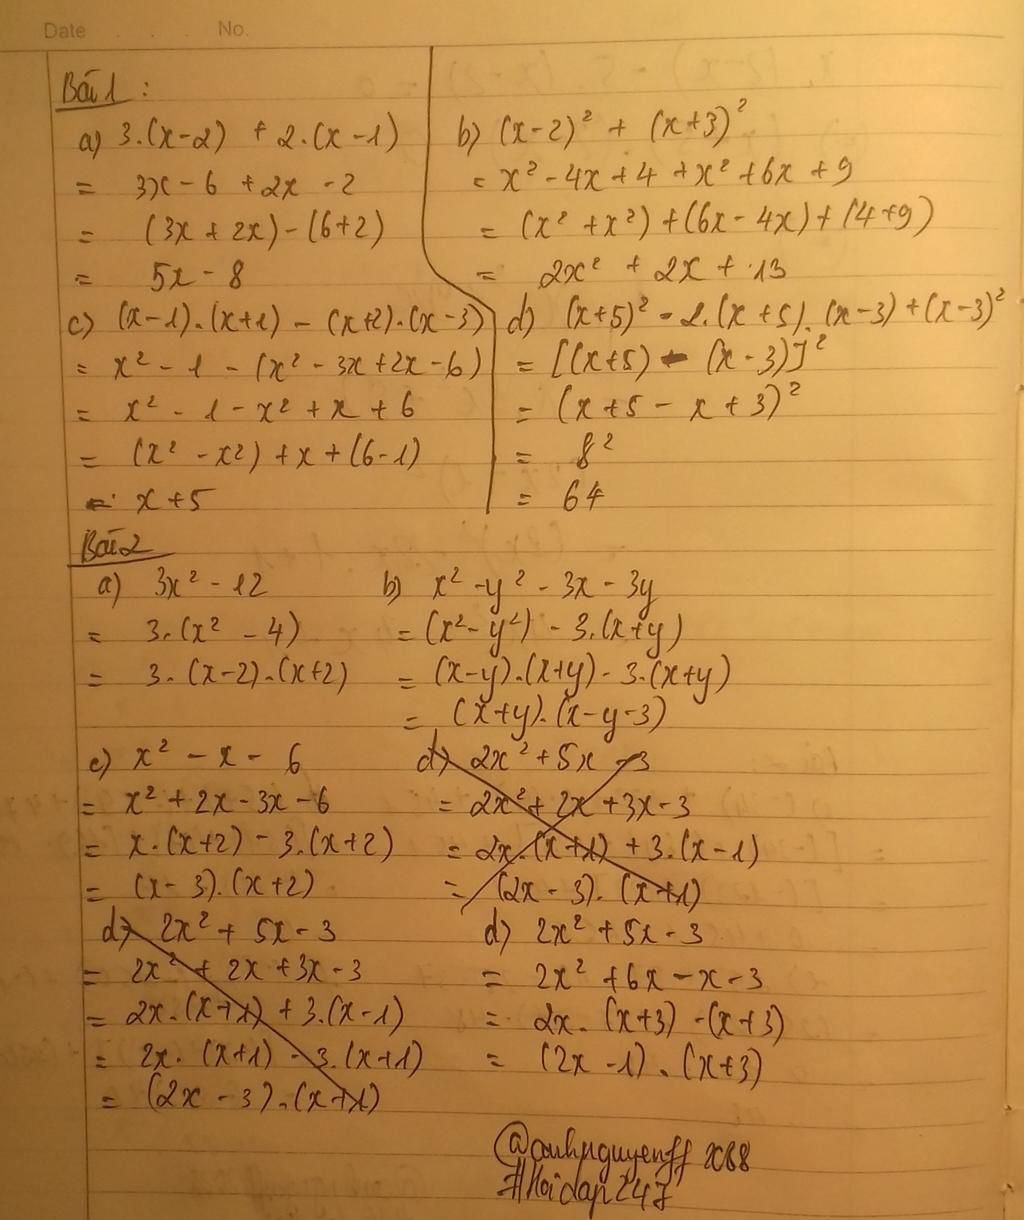 Date . . . No.
Bài 1 :
a) 3.(x-2) + 2.(x-1)
= 3x - 6 + 2x - 2
= (3x + 2x) - (6+2)
= 5x - 8
b) (x-2)² + (x+3)²
= x² - 4x + 4 + x² + 6x + 9
= (x² + x²) + (6x - 4x) + (4+9)
= 2x² + 2x + 13
c) (x-1).(x+1) - (x+2).(x-3)
= x² - 1 - (x² - 3x + 2x - 6)
= x² - 1 - x² + x + 6
= (x² - x²) + x + (6-1)
= x + 5
d) (x+5)² - 2.(x+5).(x-3) + (x-3)²
= [(x+5) - (x-3)]²
= (x + 5 - x + 3)²
= 8²
= 64
Bài 2
a) 3x² - 12
= 3.(x² - 4)
= 3.(x-2).(x+2)
b) x² - y² - 3x - 3y
= (x² - y²) - 3.(x+y)
= (x-y).(x+y) - 3.(x+y)
= (x+y).(x-y-3)
c) x² - x - 6
= x² + 2x - 3x - 6
= x.(x+2) - 3.(x+2)
= (x-3).(x+2)
d) 2x² + 5x - 3
= 2x² + 2x + 3x - 3
= 2x.(x+1) + 3.(x-1)
= (2x - 3).(x+1)
d) 2x² + 5x - 3
= 2x² + 2x + 3x - 3
= 2x.(x+1) + 3.(x-1)
= 2x.(x+1) - 3.(x+1)
= (2x - 3).(x+1)
d) 2x² + 5x - 3
= 2x² + 6x - x - 3
= 2x.(x+3) - (x+3)
= (2x - 1).(x+3)
@anhnguyenff2068
#Hoidap247